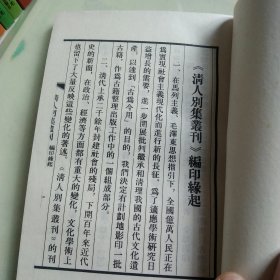 《清人別集叢刊》編印緣起
一、在馬列主義、毛澤東思想指引下，全國億萬人民正在
爲實現社會主義現代化而進行新的長征。爲了適應學術研究日
益增長的需要，進一步開展批判繼承和清理我國的古代文化遺
產，以達到「古爲今用」的目的，我們決定有計劃地影印一批
古籍，作爲古籍整理出版工作中的一個組成部分。
二、清代上承二千餘年封建社會的殘局，下開百年來近代
史的新頁，在政治、經濟等方面都有重大的變化，文化學術上
也留下了大量反映這些變化的著述。《清人別集叢刊》的刊
清人別集叢刊 編印緣起